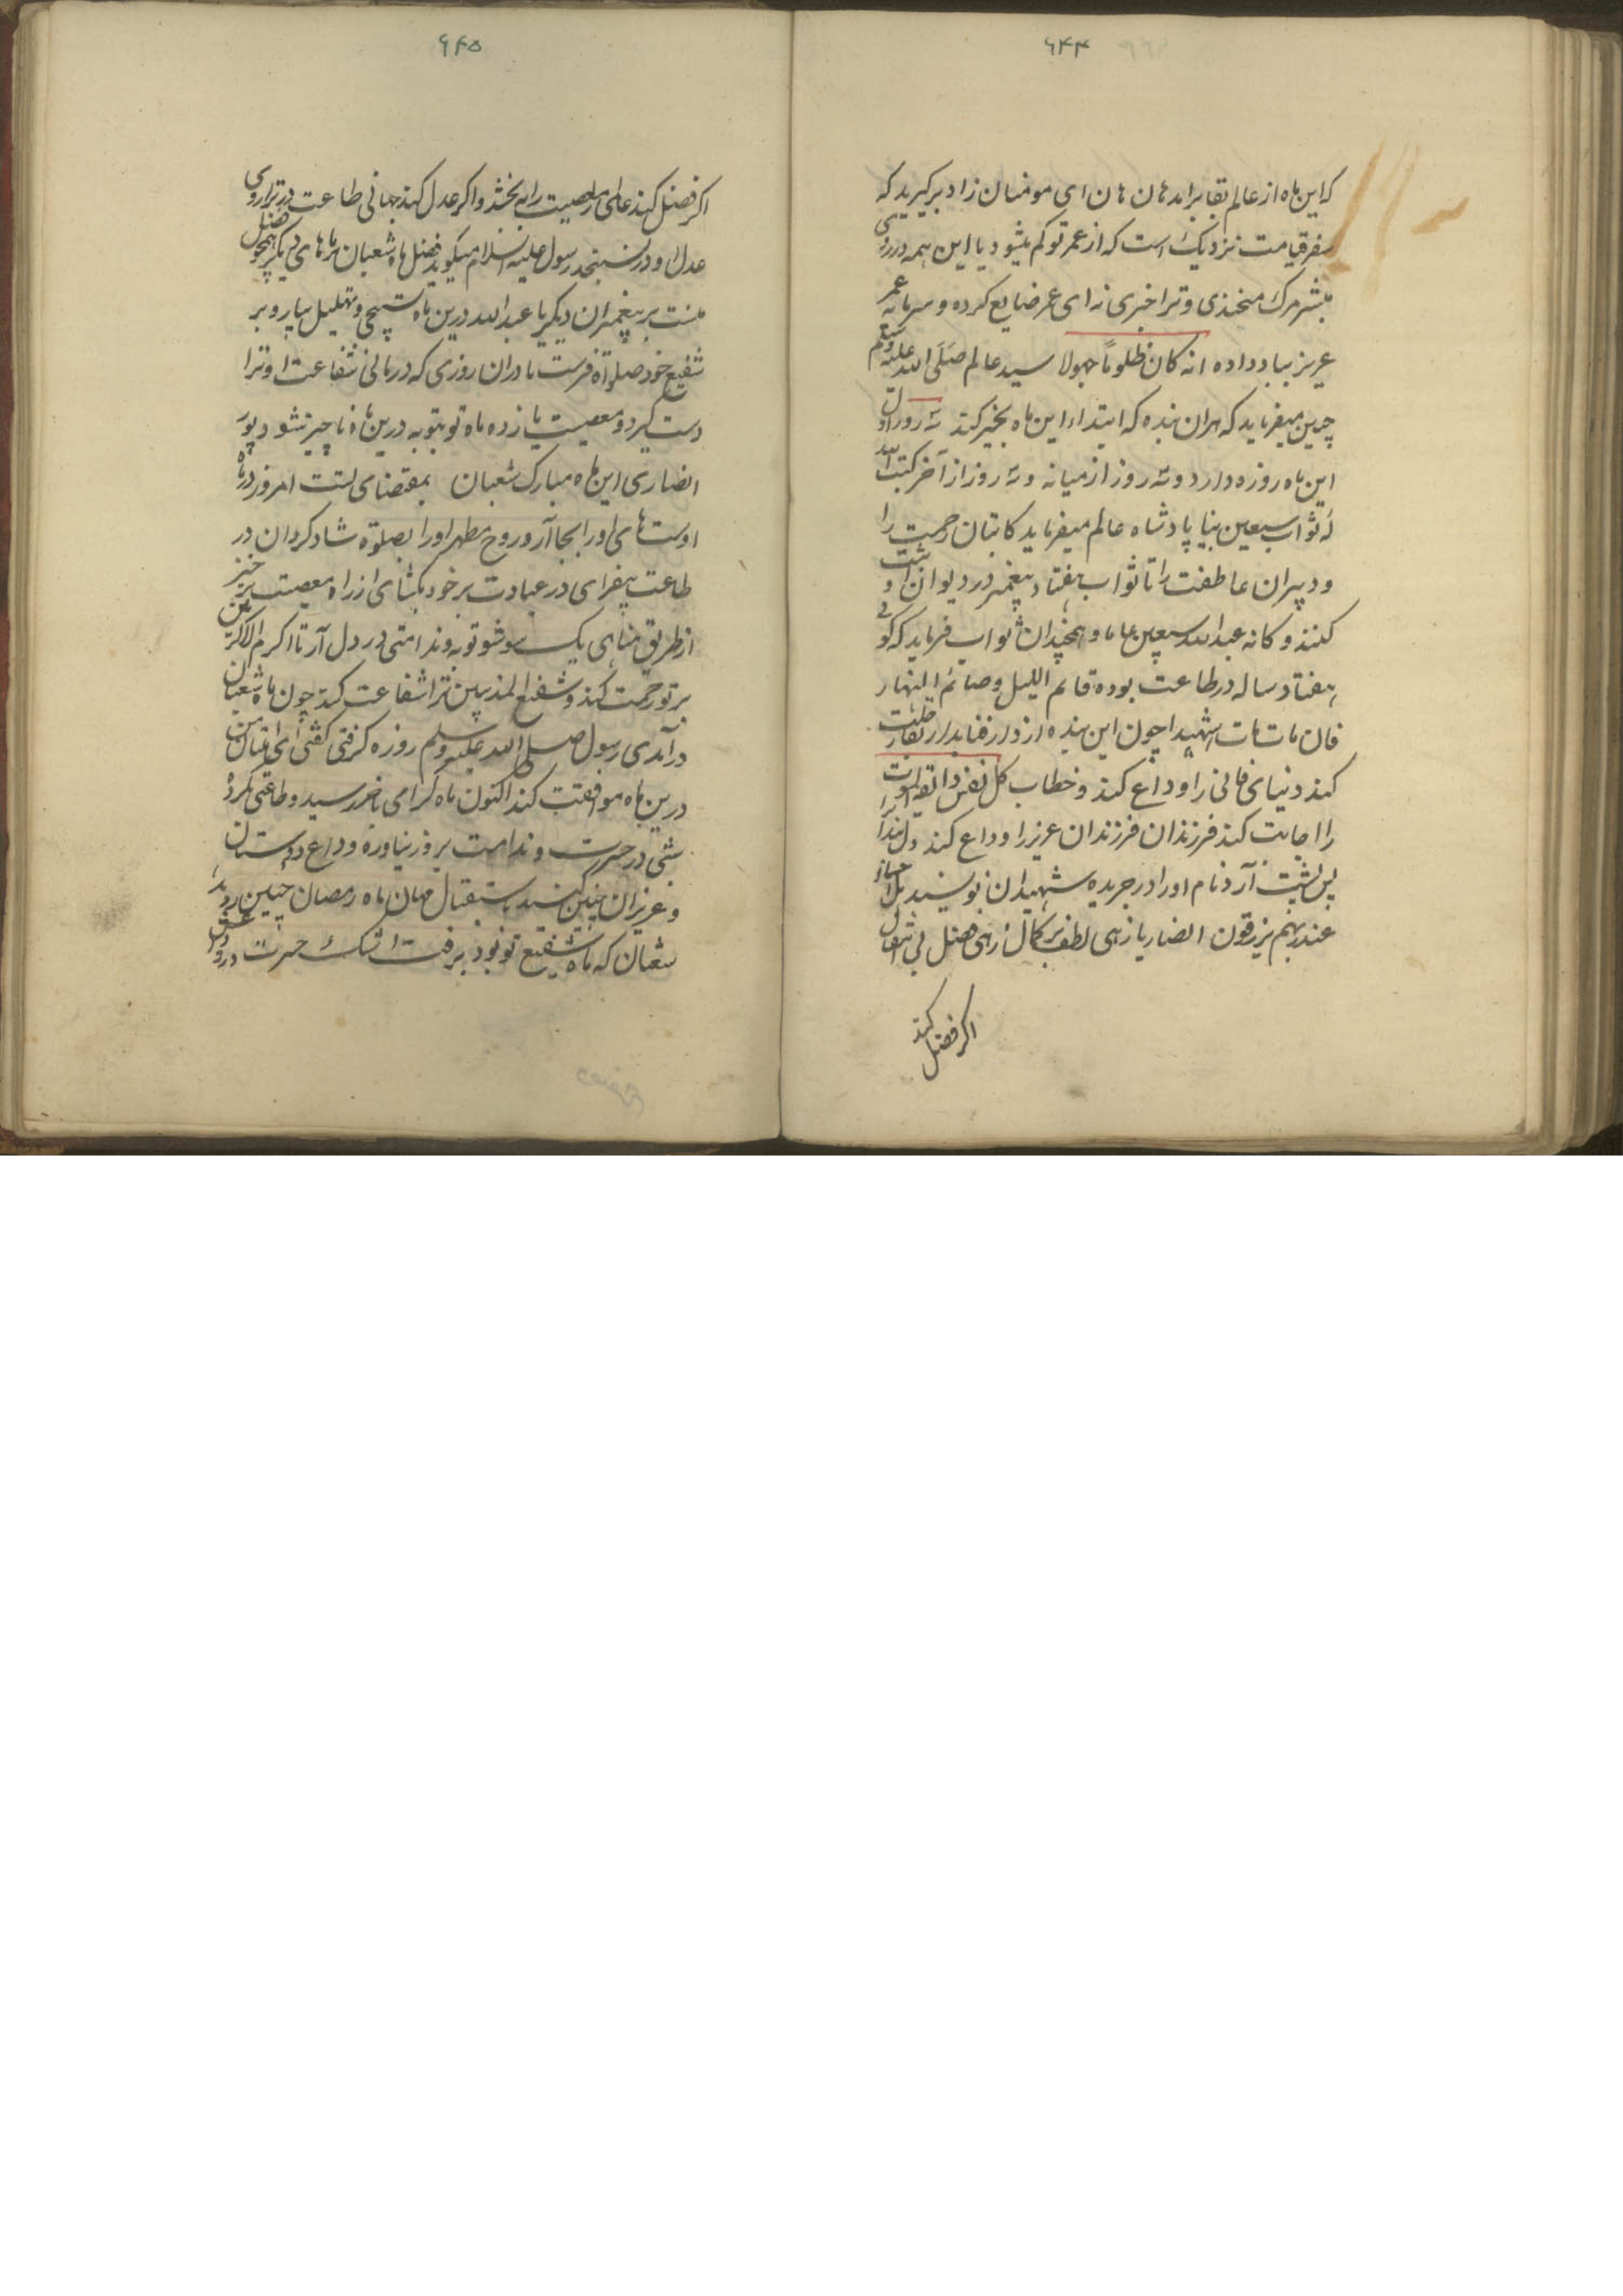 ۶۴۴
که این ماه از عالم بقا برآمد هان هان ای مومنان زاد برگیرید که
سفر قیامت نزدیک است که از عمر تو کم میشود با این همه در روی
لشکر مرک میخندی و ترا خبری نه ای عمر ضایع کرده و سرمایه عمر
عزیز بباد داده انه کان ظلوما جهولا سید عالم صلی الله علیه وسلم
چنین میفرماید که هران بنده که ابتداء این ماه بخیر کند سه روز اول
این ماه روزه دارد و سه روز از میانه و سه روز از آخر کتب الله
له ثواب سبعین نبیا پادشاه عالم میفرماید کاتبان رحمت را
و دبیران عاطفت را تا ثواب هفتاد پیغمبر در دیوان او ثبت
کنند و کانه عبد الله سبعین عاما و همچندان ثواب فرماید که گوئی
هفتاد ساله در طاعت بوده قائم اللیل و صائم النهار
فان مات مات شهیدا چون این بنده از دار فنا بدار بقا رحلت
کند دنیای فانی را وداع کند و خطاب کل نفس ذائقة الموت
را اجابت کند فرزندان عزیز را وداع کند
پس پشت آرد نام او را در جریده شهیدان نویسند بل احیاء
عند ربهم یرزقون انصاریا زهی لطف بر کمال زهی فضل بی
اگر فضل کند
۶۴۵
اگر فضل کند عالمی معصیت را به بخشد و اگر عدل کند جهانی طاعت در ترازوی
عدل او در نسنجد رسول علیه السلام میگوید فضل ماه شعبان بر ماهای دیگر همچو فضل
منست بر پیغمبران دیگر یا عبد الله درین ماه تسبیح و تهلیل بیار و بر
شفیع خود صلوة فرست تا دران روزی که درمانی شفاعت او ترا
دست گیرد و معصیت یازده ماه تو بتوبه درین ماه ناچیز شود پیر
انصاری این ماه مبارک شعبان بمقتضای امروز درماه
اوست های او را بجا آر و روح مطهر او را بصلوة شاد گردان در
طاعت بیفزای در عبادت بر خود بکشای از راه معصیت برخیز
از طریق مناهی یک سو شو توبه و ندامتی در دل آر تا اکرم الاکرمین
بر تو رحمت کند و شفیع المذنبین ترا شفاعت کند چون ماه شعبان
درآمدی رسول صلی الله علیه وسلم روزه گرفتی گفتی ای امتیان من
درین ماه موافقت کنید اکنون ماه گرامی باخر رسید و طاعتی نکردهٔ
شبی در حسرت و ندامت بروز نیاوردهٔ وداع دوستان
و عزیزان چنین کنند باستقبال مهمان ماه رمضان چنین روند
شعبان که ماه شفیع تو بود برفت اشک حسرت در